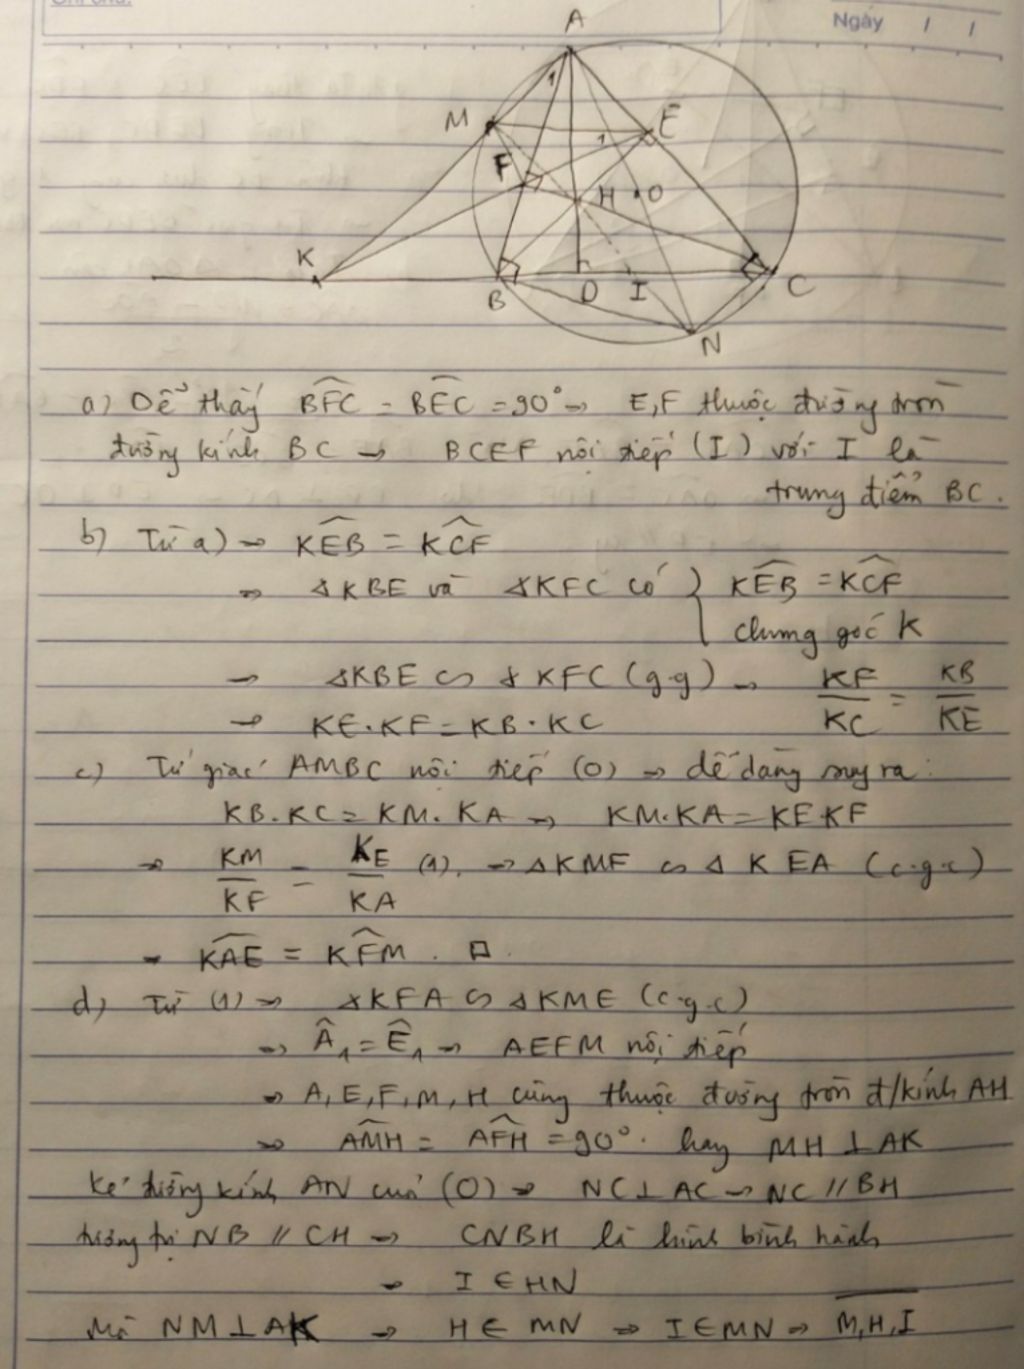 Ngày / /
A
M
E
1
1
F
H
O
K
B
D
I
C
N
a) Dễ thấy BFC = BEC = 90° → E, F thuộc đường tròn
đường kính BC → BCEF nội tiếp (I) với I là
trung điểm BC.
b) Từ a) → KEB = KCF
→ ΔKBE và ΔKFC có } KEB = KCF
chung góc K
→ ΔKBE ∽ ΔKFC (g.g) → KF/KC = KB/KE
→ KE.KF = KB.KC
c) Tứ giác AMBC nội tiếp (O) → dễ dàng suy ra:
KB.KC = KM.KA → KM.KA = KE.KF
→ KM/KF = KE/KA (1). → ΔKMF ∽ ΔKEA (c.g.c)
→ KAE = KFM. □.
d) Từ (1) → ΔKFA ∽ ΔKME (c.g.c)
→ Â₁ = Ê₁ → AEFM nội tiếp
→ A, E, F, M, H cùng thuộc đường tròn đ/kính AH
→ AMH = AFH = 90°. hay MH ⊥ AK
Kẻ đường kính AN của (O) → NC ⊥ AC → NC // BH
tương tự NB // CH → CNBH là hình bình hành
→ I ∈ HN
Mà NM ⊥ AK → H ∈ MN → I ∈ MN → M, H, I